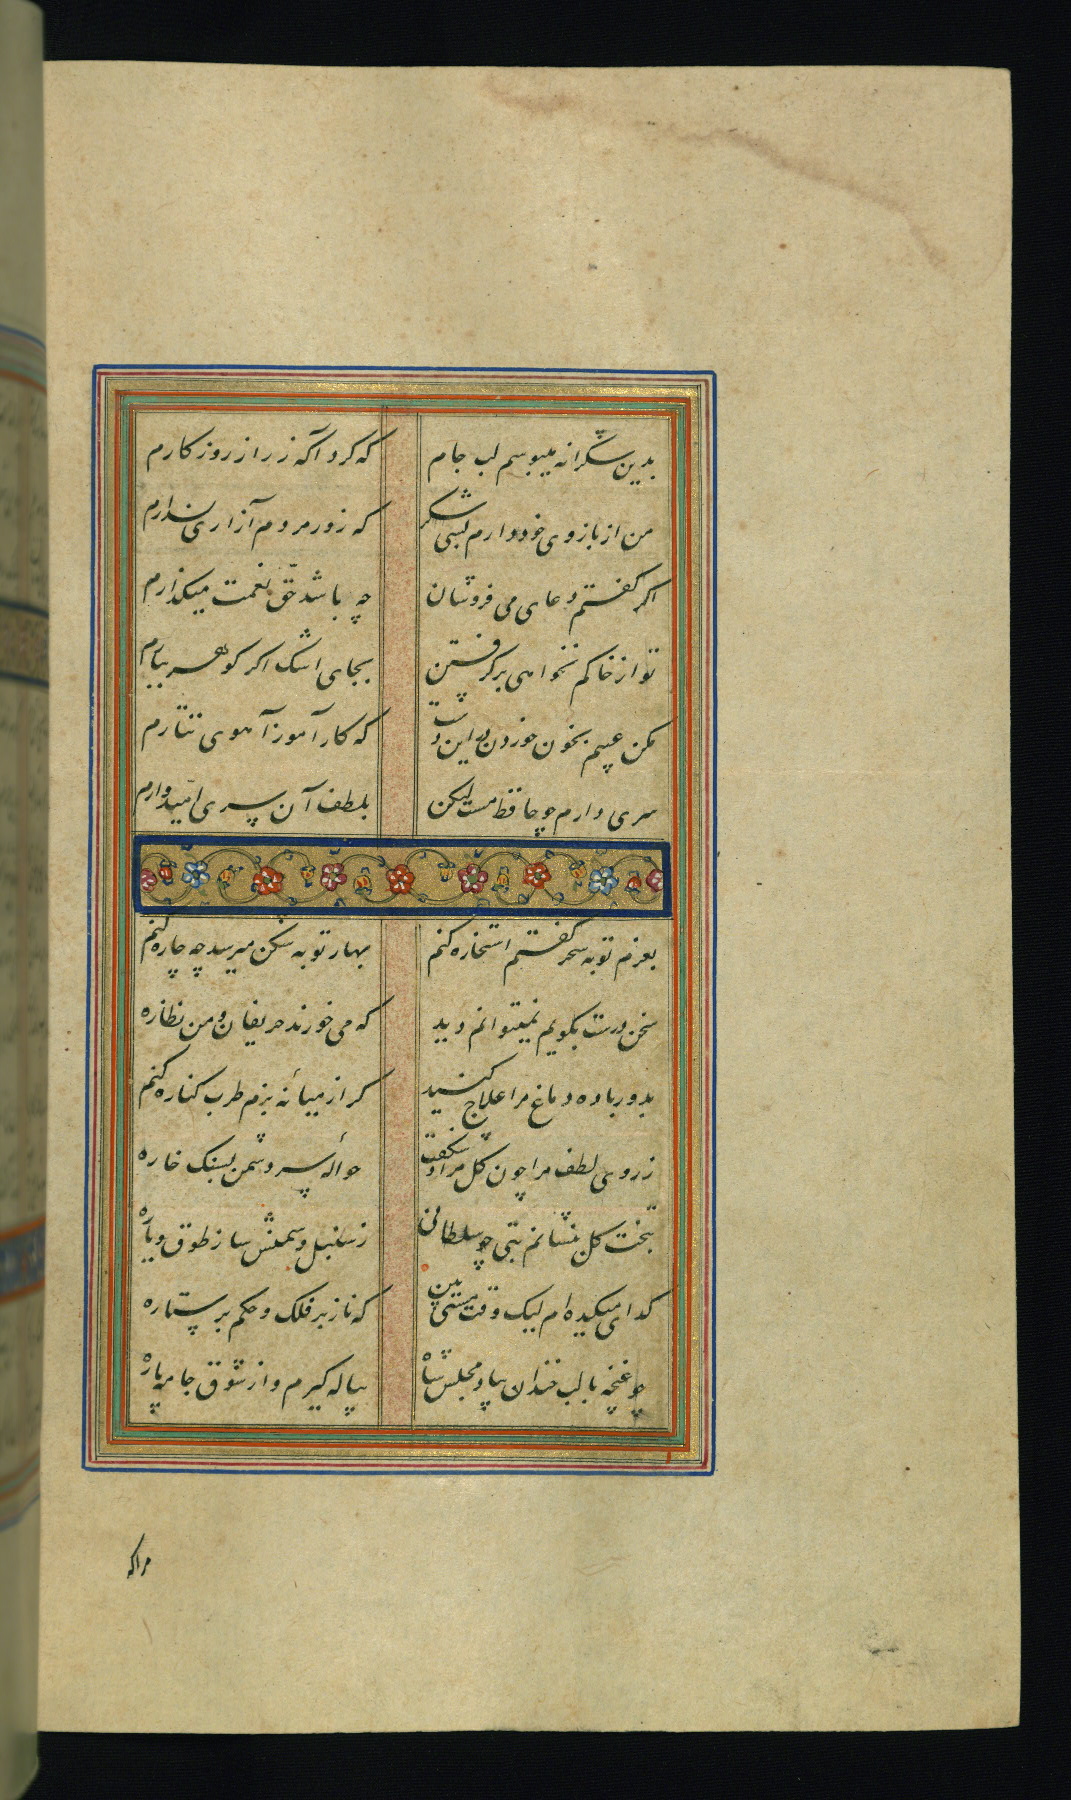 بدین شکرانه میبوسم لب جام که کرد آگه ز راز روزکارم
من از بازوی خود دارم بسی شکر که زور مردم آزاری ندارم
اکر کفتم دعای می فروشان چه باشد حق نعمت میکذارم
تو از خاکم نخواهی برکرفتن بجای اشک اکر کوهر ببارم
مکن عیبم بخون خوردن در این دشت که کارآموز آهوی تتارم
سری دارم چو حافظ مست لیکن بلطف آن سری امیدوارم
بعزم توبه سحر کفتم استخاره کنم بهار توبه شکن میرسد چه چاره کنم
سخن درست بکویم نمیتوانم دید که می خورند حریفان و من نظاره
بدور باده دماغ مرا علاج کنید کر از میانهٔ بزم طرب کناره کنم
ز روی لطف مرا چون کل مراد شکفت حوالهٔ سر دشمن بسنک خاره
بتخت کل بنشانم بتی چو سلطانی ز سنبل و سمنش ساز طوق و یاره
کدای میکده ام لیک وقت مستی بین که ناز بر فلک و حکم بر ستاره
چو غنچه با لب خندان بیاد مجلس شاه پیاله کیرم و از شوق جامه پاره
مرا که